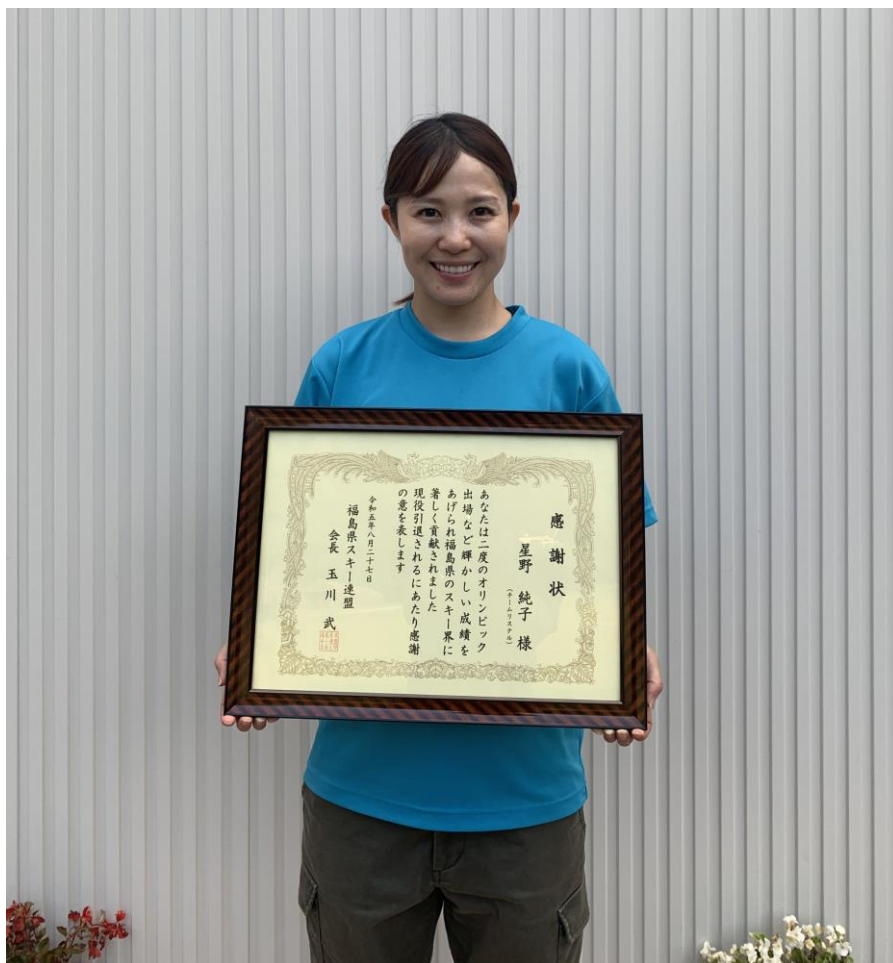 感謝状
星野 純子 様
(チームリステル)
あなたは二度のオリンピック
出場など輝かしい成績を
あげられ福島県のスキー界に
著しく貢献されました
現役引退されるにあたり感謝
の意を表します
令和五年八月二十七日
福島県スキー連盟
会長 玉川 武